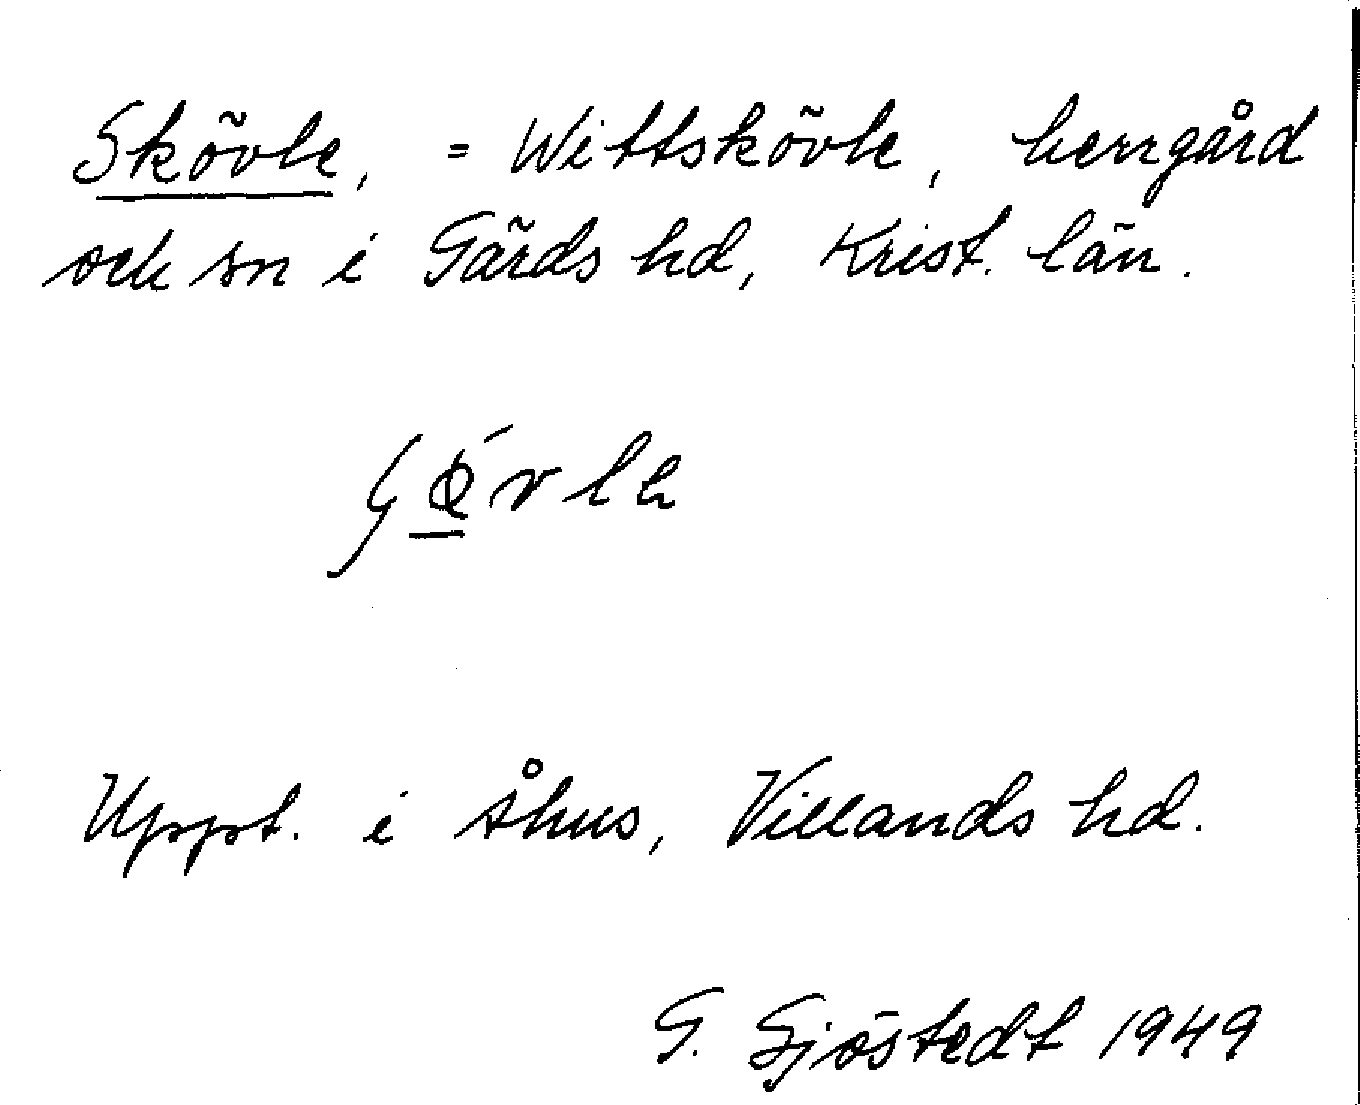 Skövle, = Wittskövle, herrgård
och sn i Gärds hd, Krist. län.
Uppt. i Åhus, Villands hd.
G. Sjöstedt 1949